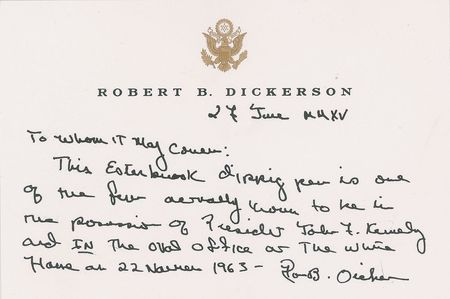 ROBERT B. DICKERSON
27 June MMXV
To Whom It May Concern:
This Esterbrook dipping pen is one
of the few actually known to be in
the possession of President John F. Kennedy
and IN the Oval Office at The White
House on 22 November 1963 -